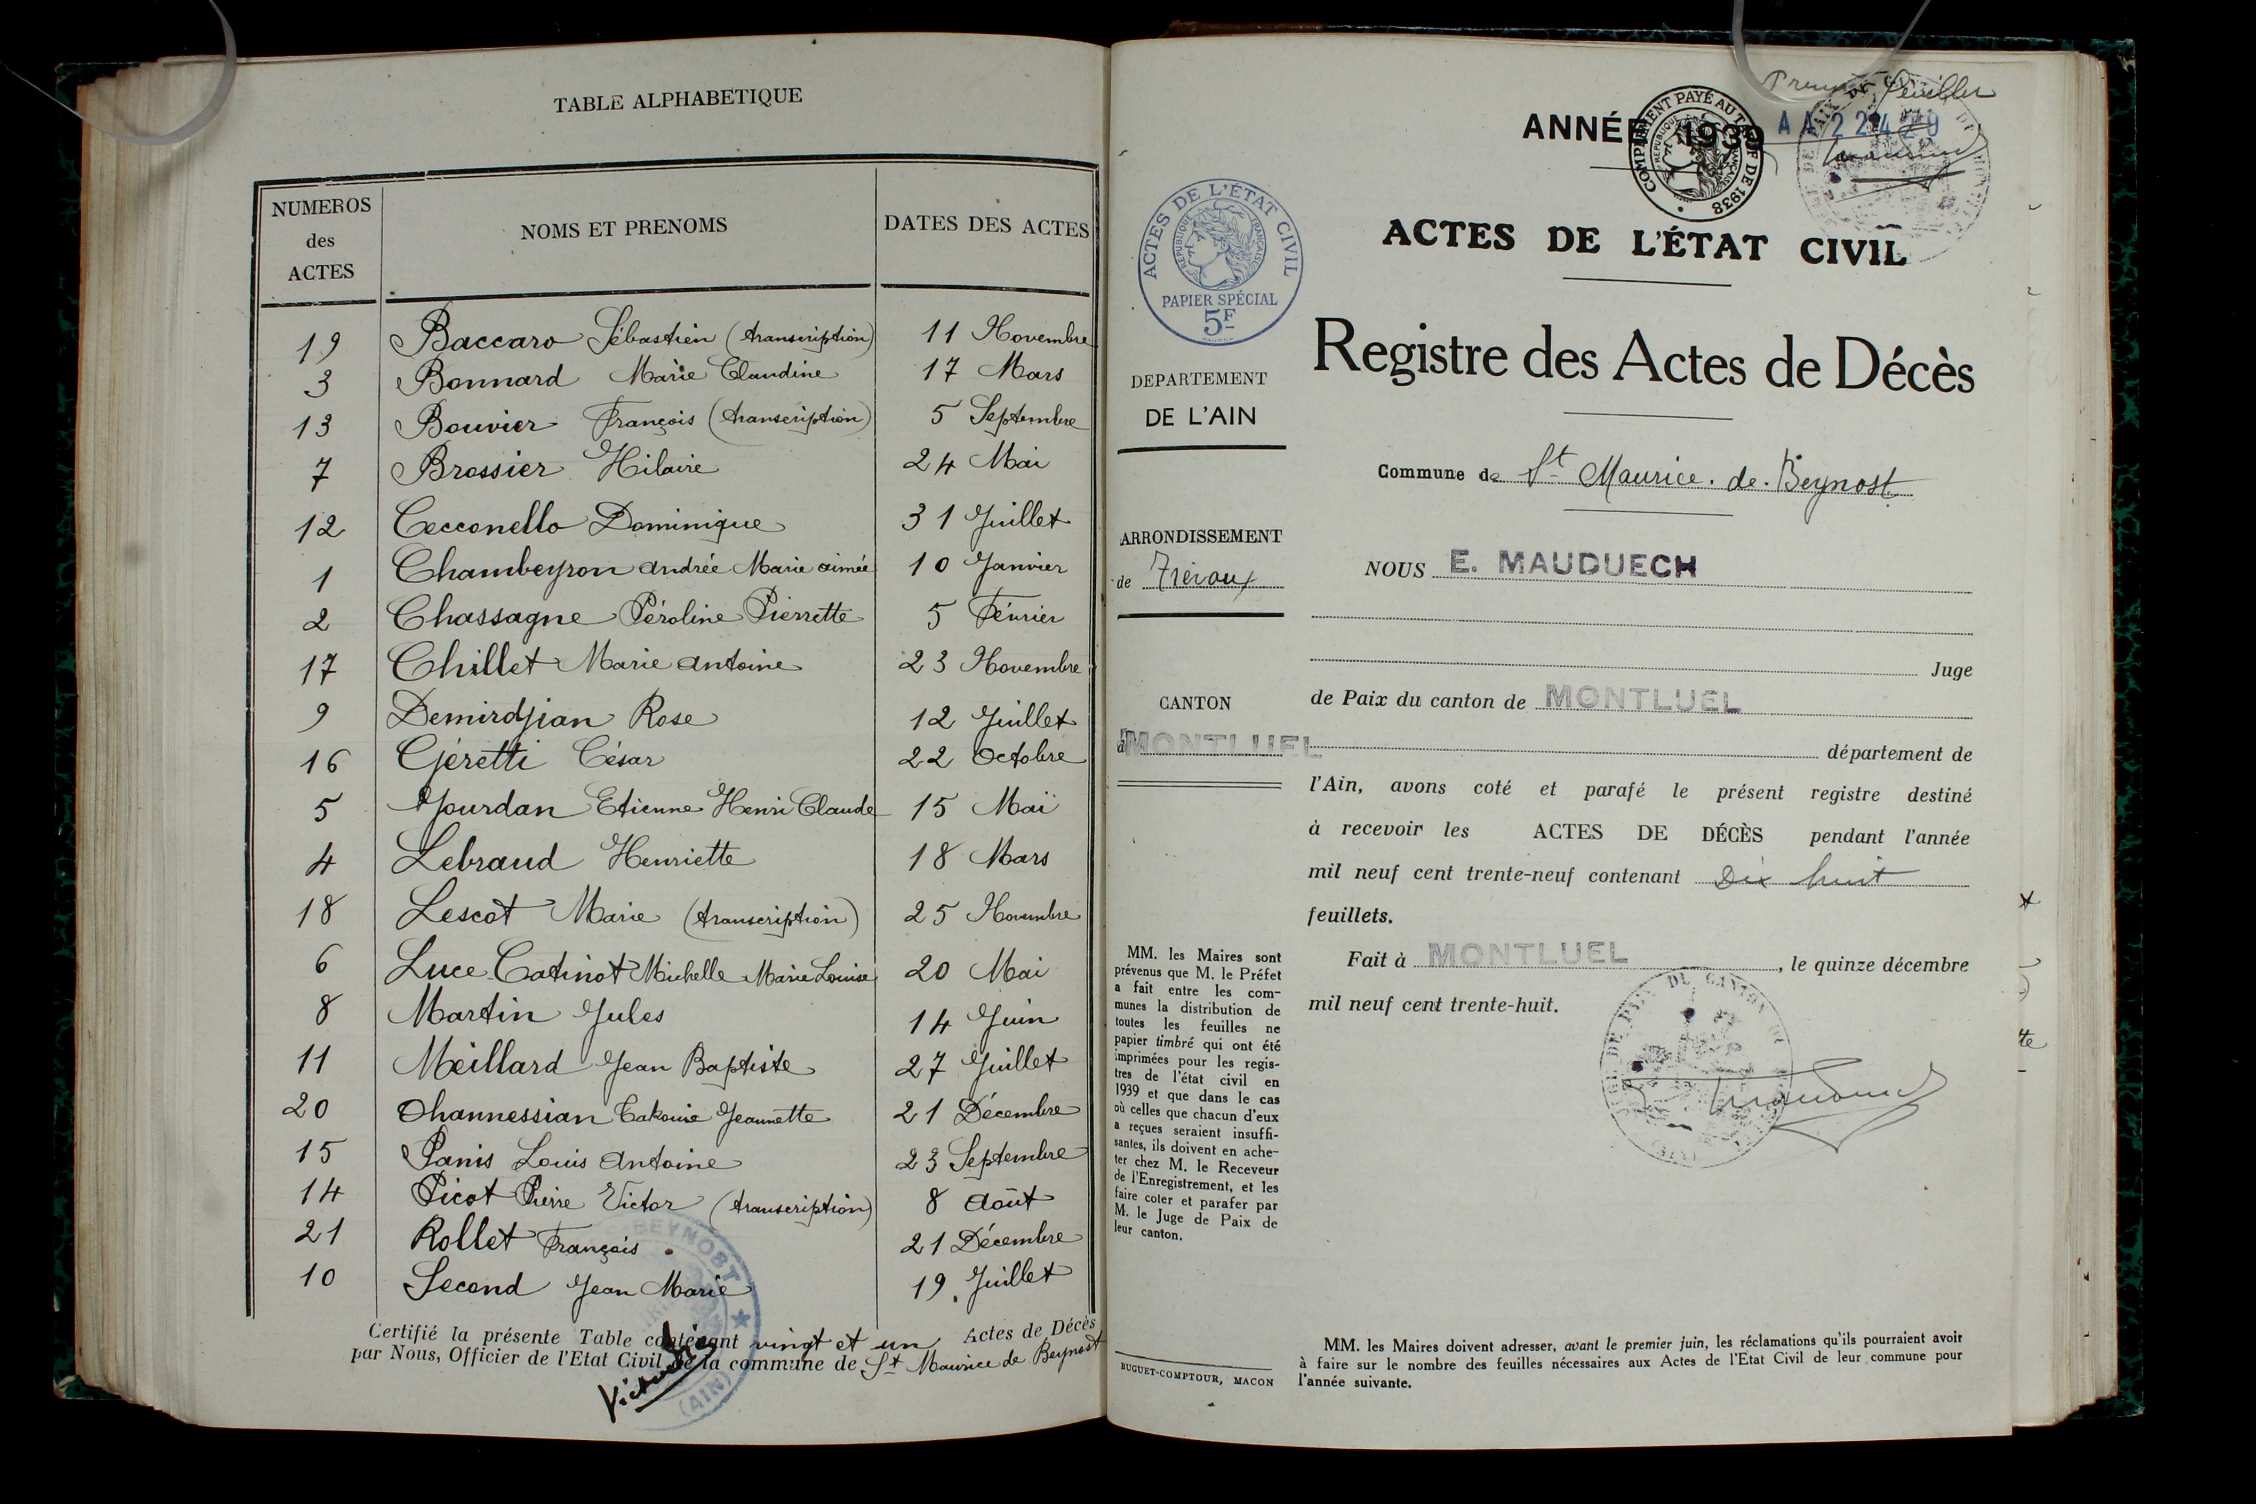 TABLE ALPHABETIQUE
NUMEROS des ACTES
NOMS ET PRENOMS
DATES DES ACTES
19 Baccaro Sébastien (transcription) 11 Novembre
3 Bonnard Marie Claudine 17 Mars
13 Bouvier François (transcription) 5 Septembre
7 Brossier Hilaire 24 Mai
12 Cecconello Dominique 31 Juillet
1 Chambeyron andrée Marie aimée 10 Janvier
2 Chassagne Péroline Pierrette 5 Février
17 Chillet Marie antoine 23 Novembre
9 Demirdjian Rose 12 Juillet
16 Géretti César 22 Octobre
5 Jourdan Etienne Henri Claude 15 Maï
4 Lebraud Henriette 18 Mars
18 Lescot Marie (transcription) 25 Novembre
6 Luce-Catinot Michelle Marie Louise 20 Mai
8 Martin Jules 14 Juin
11 Meillard Jean Baptiste 27 Juillet
20 Ohannessian Takouie Jeannette 21 Décembre
15 Panis Louis Antoine 23 Septembre
14 Picot Pierre Victor (transcription) 8 Août
21 Rollet François 21 Décembre
10 Second Jean Marie 19 Juillet
Certifié la présente Table contenant vingt et un Actes de Décès
par Nous, Officier de l'Etat Civil de la commune de St Maurice de Beynost
BEYNOST ★ (AIN)
Premier feuillet
ANNÉE 1939
AA 22429
COMPLÉMENT PAYÉ AU TARIF DE 1938
ACTES DE L'ÉTAT CIVIL
RÉPUBLIQUE FRANÇAISE
PAPIER SPÉCIAL
5F
ACTES DE L'ÉTAT CIVIL
Registre des Actes de Décès
DEPARTEMENT
DE L'AIN
Commune de St Maurice. de. Beynost
ARRONDISSEMENT
de Trévoux
CANTON
d MONTLUEL
NOUS E. MAUDUECH
Juge
de Paix du canton de MONTLUEL
département de
l'Ain, avons coté et parafé le présent registre destiné
à recevoir les ACTES DE DÉCÈS pendant l'année
mil neuf cent trente-neuf contenant Dix huit
feuillets.
Fait à MONTLUEL, le quinze décembre
mil neuf cent trente-huit.
MM. les Maires sont
prévenus que M. le Préfet
a fait entre les com-
munes la distribution de
toutes les feuilles ne
papier timbré qui ont été
imprimées pour les regis-
tres de l'état civil en
1939 et que dans le cas
où celles que chacun d'eux
a reçues seraient insuffi-
santes, ils doivent en ache-
ter chez M. le Receveur
de l'Enregistrement, et les
faire coter et parafer par
M. le Juge de Paix de
leur canton.
BUGUET-COMPTOUR, MACON
MM. les Maires doivent adresser, avant le premier juin, les réclamations qu'ils pourraient avoir
à faire sur le nombre des feuilles nécessaires aux Actes de l'Etat Civil de leur commune pour
l'année suivante.